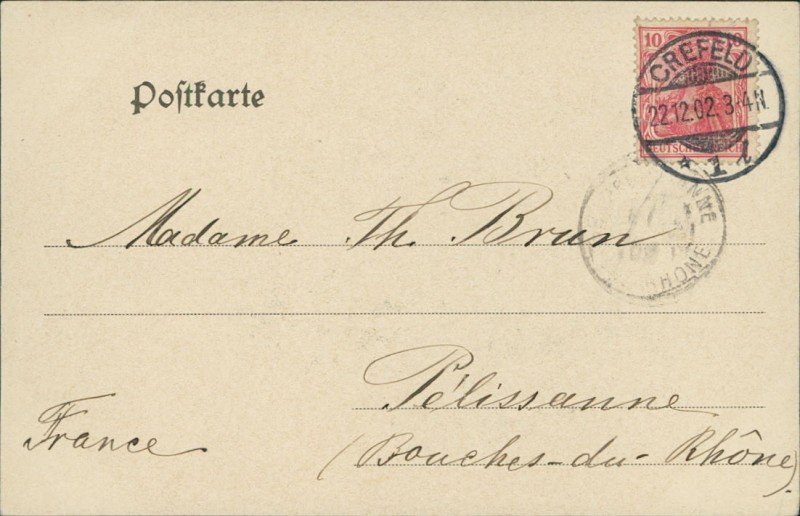 Postkarte
10
CREFELD
22.12.02. 3-4 N.
* 1 l
DEUTSCHES REICH
RHONE
Madame Th. Brun
Pélissanne
France
(Bouches-du-Rhône).